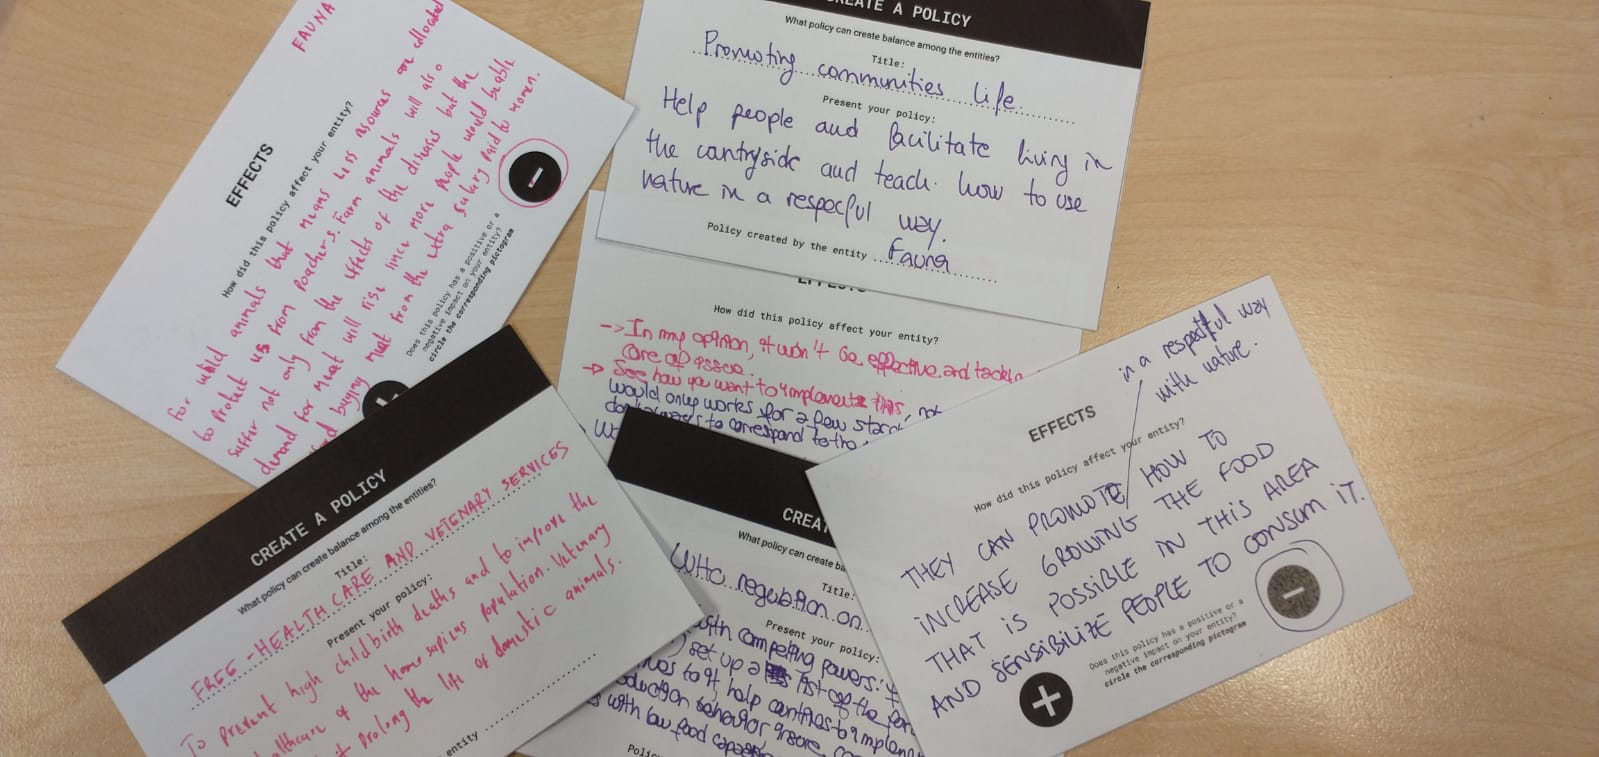 FAUNA
EFFECTS
How did this policy affect your entity?
For wild animals that means less resources are allocated
to Protect us from poachers. Farm animals will also
suffer not only from the effects of the diseases but the
demand for meat will rise since more people would be able
buying meat from the extra salary paid to women.
Does this policy has a positive or a
negative impact on your entity?
circle the corresponding pictogram
CREATE A POLICY
What policy can create balance among the entities?
Title:
Promoting communities life.
Present your policy:
Help people and facilitate living in
the cantryside and teach how to use
nature in a respecful way.
Policy created by the entity Fauna
EFFECTS
How did this policy affect your entity?
-> In my opinion, it won't be effective and
care of
-> See how you want to implement this
would only works for a few not
to correspond to the
CREATE A POLICY
What policy can create balance among the entities?
Title:
FREE-HEALTHCARE AND VETENARY SERVICES
Present your policy:
To prevent high childbirth deaths and to improve the
healthcare of the homo sapiens population. Vetenary
prolong the life of domestic animals.
entity
CREAT
What policy can create ba
Title:
Who regulation on
Present your policy:
with competing powers:
set up a list of the
to it, help contries to
behavior
with low food
EFFECTS
How did this policy affect your entity?
in a respectful way
with nature.
THEY CAN PROMOTE HOW TO
INCREASE GROWING THE FOOD
THAT IS POSSIBLE IN THIS AREA
AND SENSIBILIZE PEOPLE TO CONSUM IT.
Does this policy has a positive or a
negative impact on your entity?
circle the corresponding pictogram